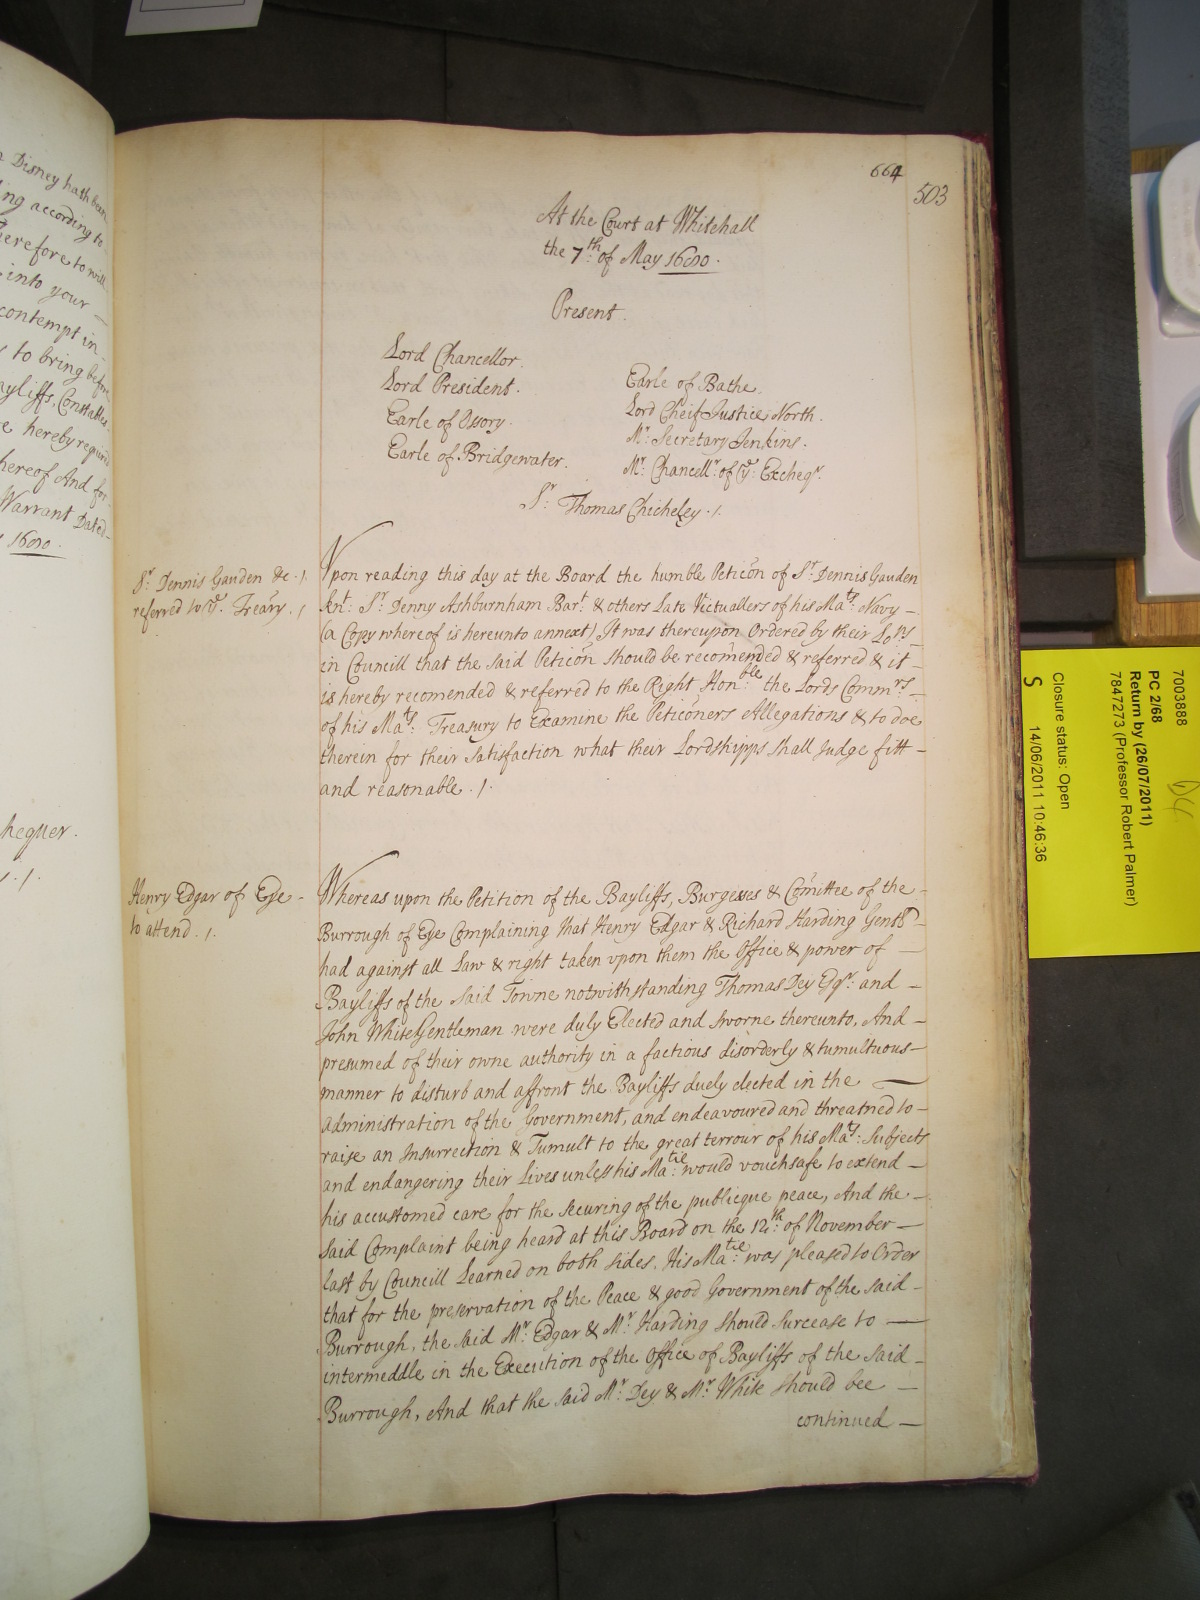 Disney hath been
ing according to
herefore to will
into your —
contempt in
to bring before
ayliffs, Constables
e hereby required
hereof And for
Warrant Dated
1680.
hequer.
664
503
At the Court at Whitehall
the 7th: of May 1680.
Present.
Lord Chancellor.
Lord President.
Earle of Ossory.
Earle of Bridgewater.
Earle of Bathe.
Lord Cheif Justice North.
Mr: Secretary Jenkins.
Mr: Chancellr: of ye: Excheqr.
Sr: Thomas Chicheley ./.
Sr: Dennis Gauden &c ./.
referred to ye: Treãry ./
Vpon reading this day at the Board the humble Peticõn of Sr: Dennis Gauden
Knt: Sr: Denny Ashburnham Bart: & others Late Victuallers of his Mats: Navy –
(a Copy whereof is hereunto annext) It was thereupon Ordered by their Lopps –
in Councill that the said Peticõn should be recom̃ended & referred & it –
is hereby recomended & referred to the Right Honble: the Lords Commrs –
of his Mats: Treasury to Examine the Peticõners Allegations & to doe
therein for their satisfaction what their Lordshipps shall Judge fitt –
and reasonable ./.
Henry Edgar of Eye –
to attend ./.
Whereas upon the Petition of the Bayliffs, Burgesses & Com̃ittee of the –
Burrough of Eye Complaining that Henry Edgar & Richard Harding Gents –
had against all Law & right taken vpon them the Office & power of —
Bayliffs of the said Towne notwithstanding Thomas Dey Esqr: and –
John White Gentleman were duly Elected and sworne thereunto, And –
presumed of their owne authority in a factious disorderly & tumultuous –
manner to disturb and affront the Bayliffs duely elected in the —
administration of the Government, and endeavoured and threatned to –
raise an Insurrection & Tumult to the great terrour of his Mats: Subjects
and endangering their Lives unless his Matie: would vouchsafe to extend –
his accustomed care for the securing of the publicque peace, And the –
said Complaint being heard at this Board on the 12th: of November —
last by Councill Learned on both sides, His Matie: was pleased to Order
that for the preservation of the Peace & good Government of the said –
Burrough, the said Mr: Edgar & Mr: Harding should surcease to —
intermeddle in the Execution of the Office of Bayliffs of the said –
Burrough, And that the said Mr: Dey & Mr: White should bee —
continued —
7003888
PC 2/68
Return by (26/07/2011)
7847273 (Professor Robert Palmer)
Closure status: Open
S 14/06/2011 10:46:36